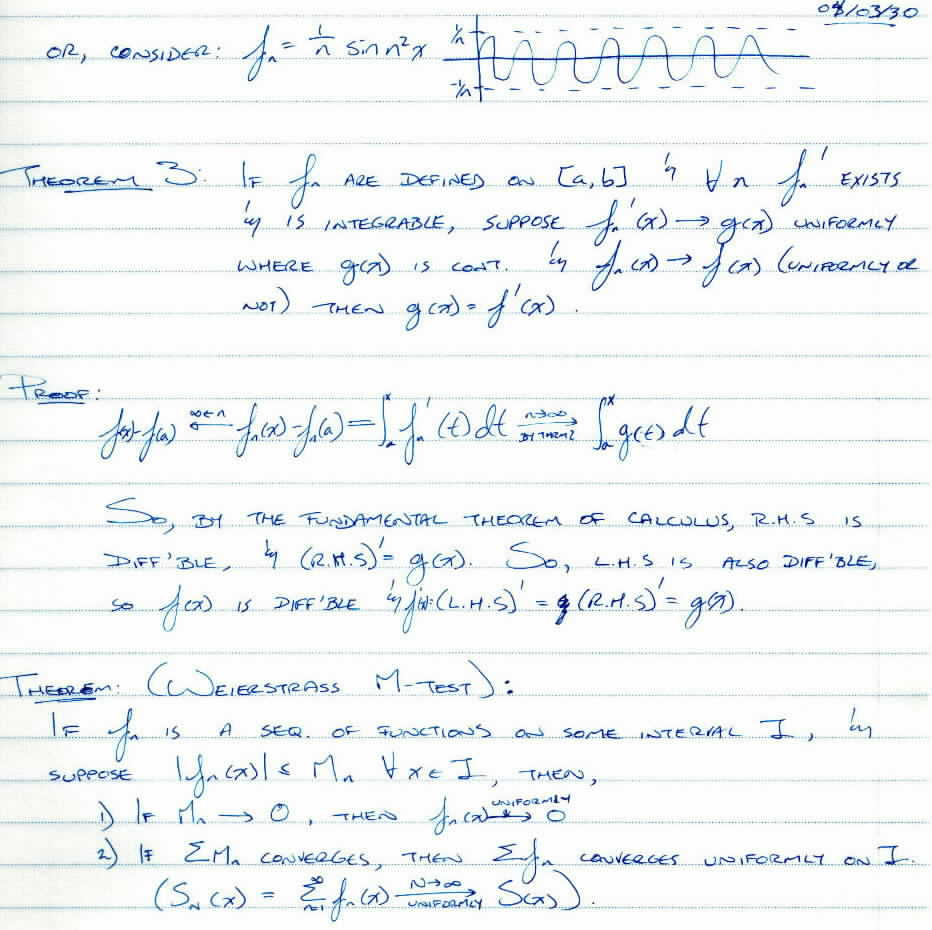 08/03/30
OR, CONSIDER: fₙ = 1/n sin n²x 1/n -1/n
THEOREM 3: IF fₙ ARE DEFINED ON [a,b] & ∀ n fₙ' EXISTS
& IS INTEGRABLE, SUPPOSE fₙ'(x) → g(x) UNIFORMLY
WHERE g(x) IS CONT. & fₙ(x) → f(x) (UNIFORMLY OR
NOT) THEN g(x) = f'(x).
PROOF:
f(x)-f(a) ←^{∞←n} fₙ(x)-fₙ(a) = ∫ₐˣ fₙ'(t) dt →^{n→∞}_{BY THRM 2} ∫ₐˣ g(t) dt
SO, BY THE FUNDAMENTAL THEOREM OF CALCULUS, R.H.S IS
DIFF'BLE, & (R.H.S)' = g(x). SO, L.H.S IS ALSO DIFF'BLE,
SO f(x) IS DIFF'BLE & f'(x) = (L.H.S)' = (R.H.S)' = g(x).
THEOREM: (WEIERSTRASS M-TEST):
IF fₙ IS A SEQ. OF FUNCTIONS ON SOME INTERVAL I, &
SUPPOSE |fₙ(x)| ≤ Mₙ ∀ x ∈ I, THEN,
1) IF Mₙ → 0, THEN fₙ(x) →^{UNIFORMLY} 0
2) IF ΣMₙ CONVERGES, THEN Σfₙ CONVERGES UNIFORMLY ON I.
(S_N(x) = Σ_{n=1}^{∞} fₙ(x) →^{N→∞}_{UNIFORMLY} S(x)).